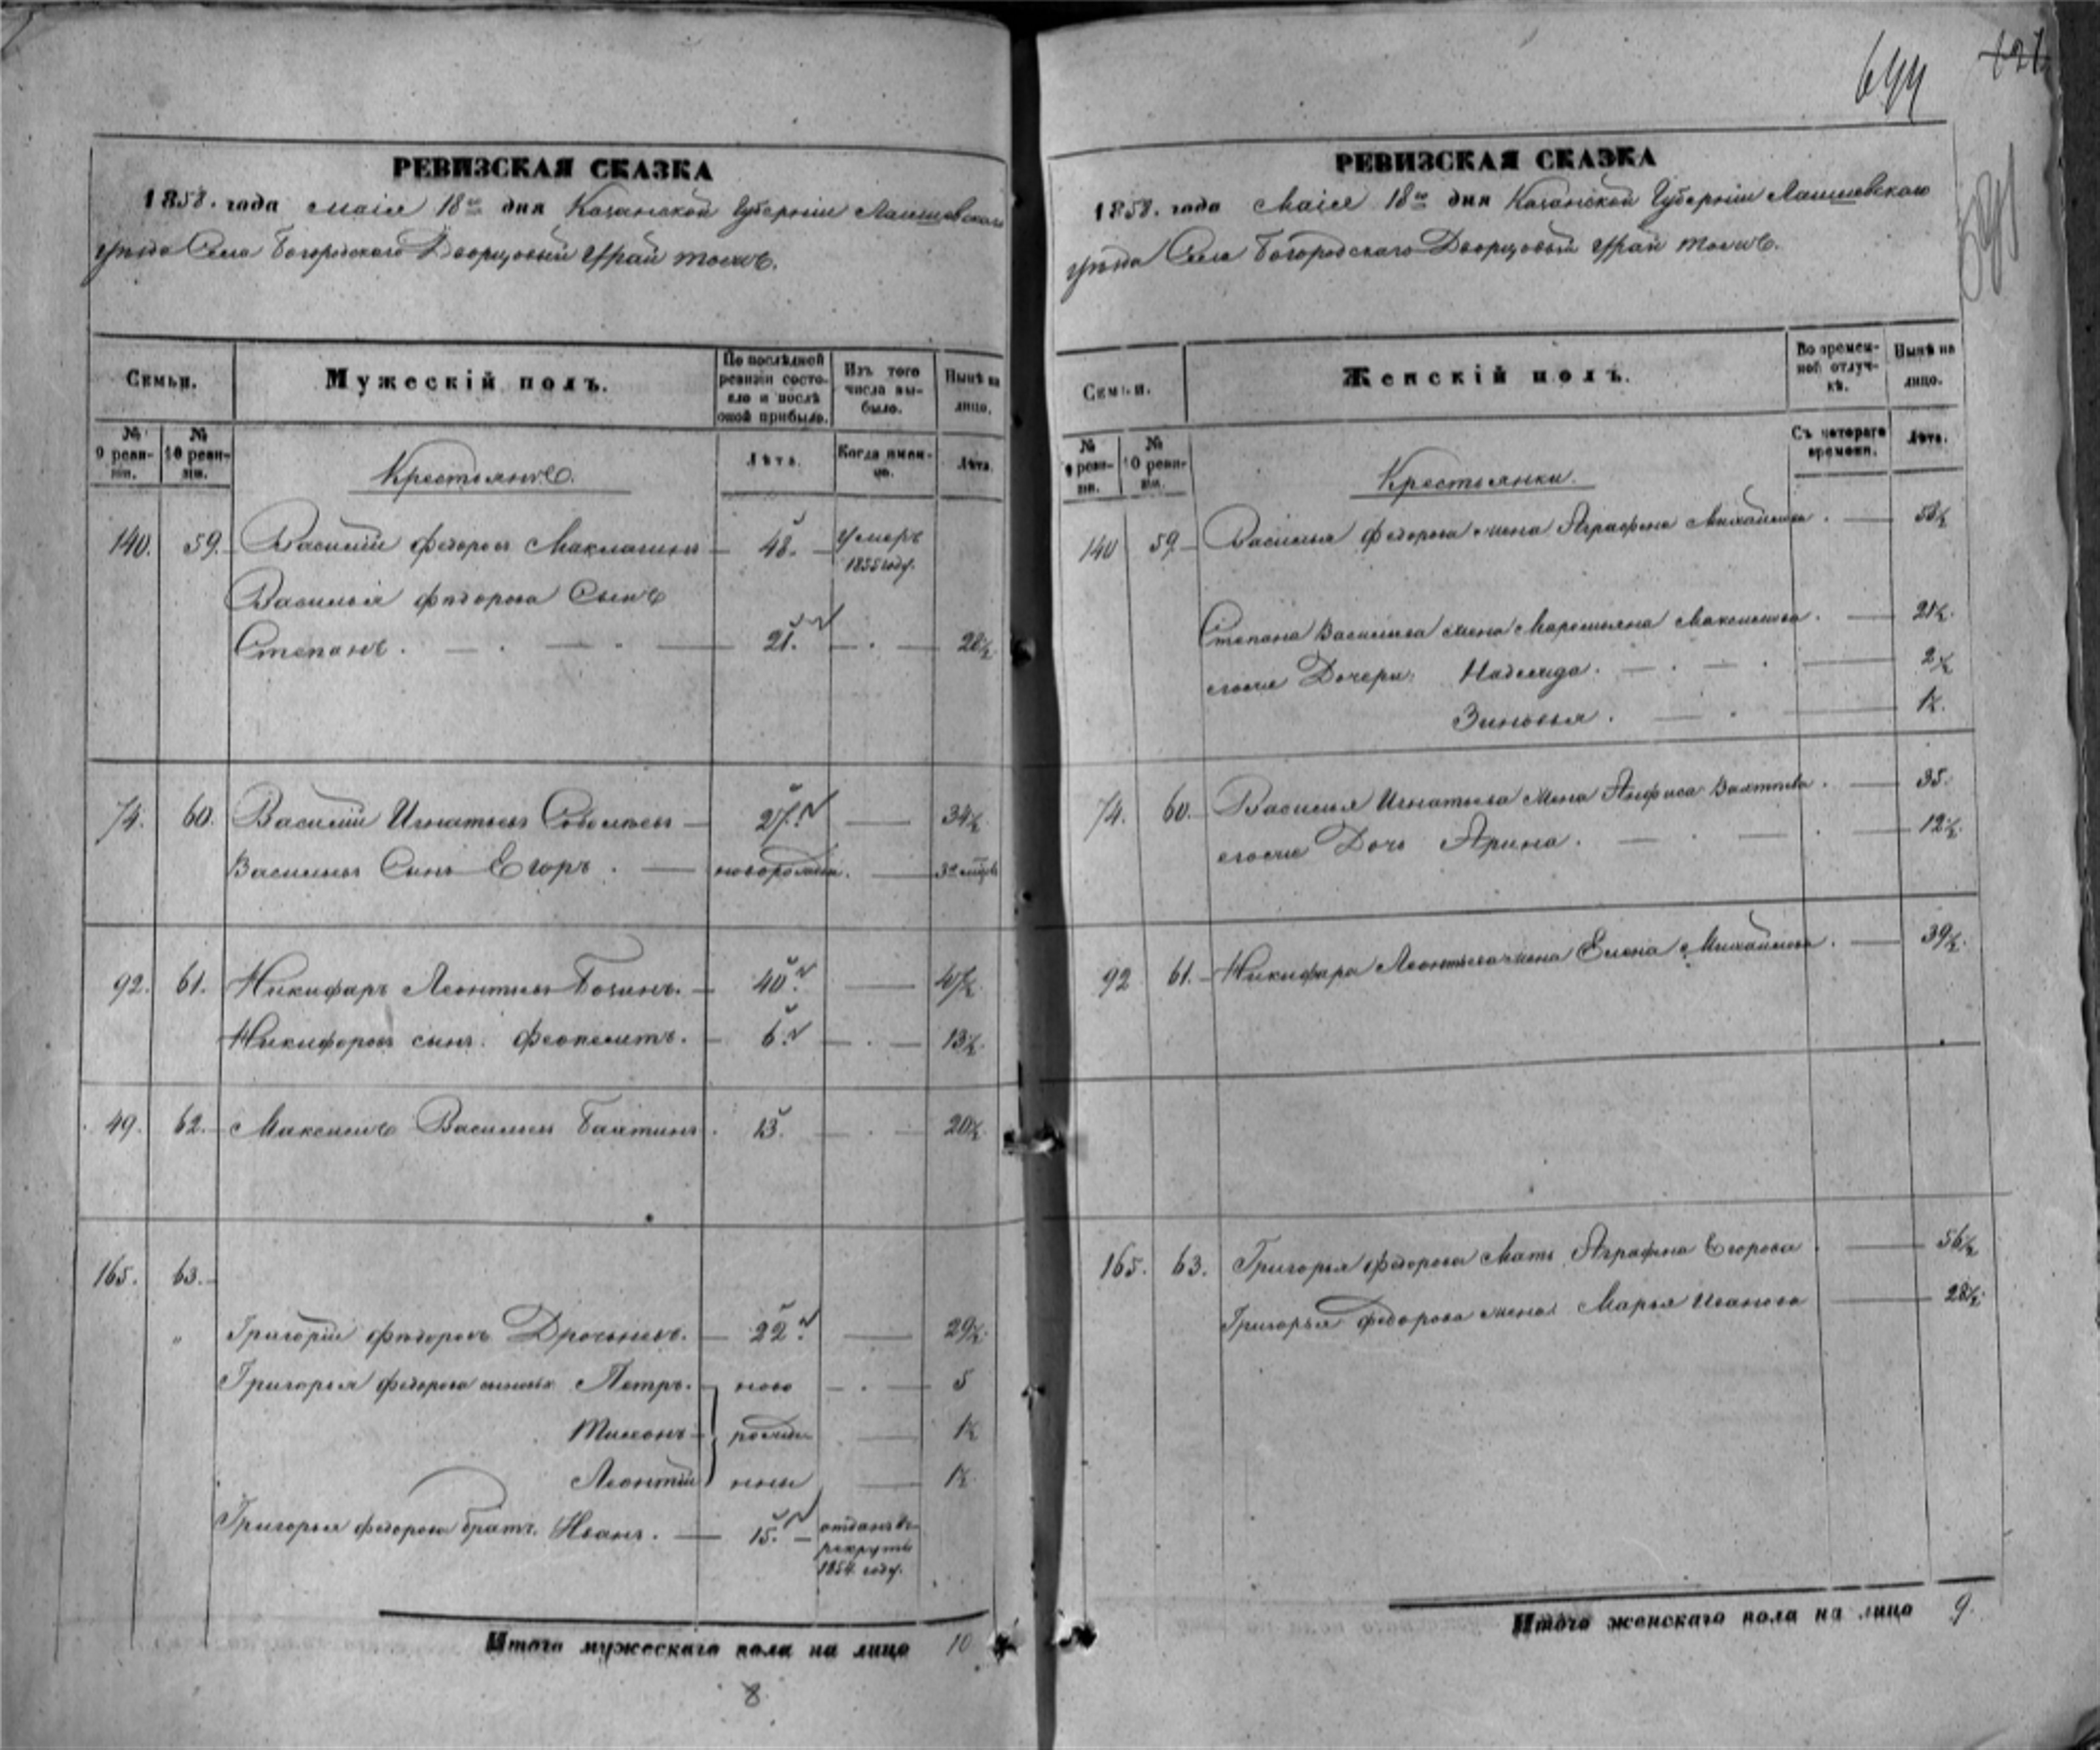 644
РЕВИЗСКАЯ СКАЗКА
1858. года маія 18го дня Казанской Губерніи Лаишевскаго
уѣзда Села Богородскаго Дворцовый Урай тожъ.
Семьи.
Мужескій полъ.
По послѣдней ревизіи состояло и послѣ оной прибыло.
Изъ того числа выбыло.
Нынѣ на лицо.
№ 9 ревизіи.
№ 10 ревизіи.
Крестьяне.
Лѣта.
Когда именно.
Лѣта.
140. 59. Василій Федоровъ 48. умеръ 1855 году.
Василья Федорова Сынъ
Степанъ. 21. 28½
74. 60. Василій Игнатьевъ 27. 34½
Васильевъ Сынъ Егоръ. новорожден. 3х
92. 61. Никифаръ Леонтьевъ 40. 47½
Никифоровъ сынъ. 6. 13½
49. 62. Максимъ Васильевъ Бахтинъ. 13. 20½
165. 63.
" Григорій Федоровъ 22. 29½
Григорья Федорова сыновья Петръ. ново 5
Тимонъ рожден 1½
Леонтій ные 1½
Григорья Федорова братъ. Иванъ. 15. отданъ въ рекруты 1854. году.
Итого мужескаго пола на лицо 10
8
РЕВИЗСКАЯ СКАЗКА
1858. года Маія 18го дня Казанской Губерніи Лаишевскаго
уѣзда Села Богородскаго Дворцовый Урай тожъ.
Семьи.
Женскій полъ.
Во временной отлучкѣ.
Нынѣ на лицо.
№ 9 ревизіи.
№ 10 ревизіи.
Крестьянки.
Съ котораго времени.
Лѣта.
140 59. Василья Федорова жена Аграфена Михайлова.
Степана Васильева жена Маремьяна Максимова. 21½.
егоже Дочери: Надежда. 2½
Зиновья. 1½.
74. 60. Василья Игнатьева жена Анфиса 35.
егоже Дочь Арина. 12½.
92 61. Никифара Леонтьева жена Елена Михайлова. 39½.
165. 63. Григорья Федорова Мать Аграфена Егорова 56½
Григорья Федорова жена Марья Иванова 28½.
Итого женскаго пола на лицо 9.